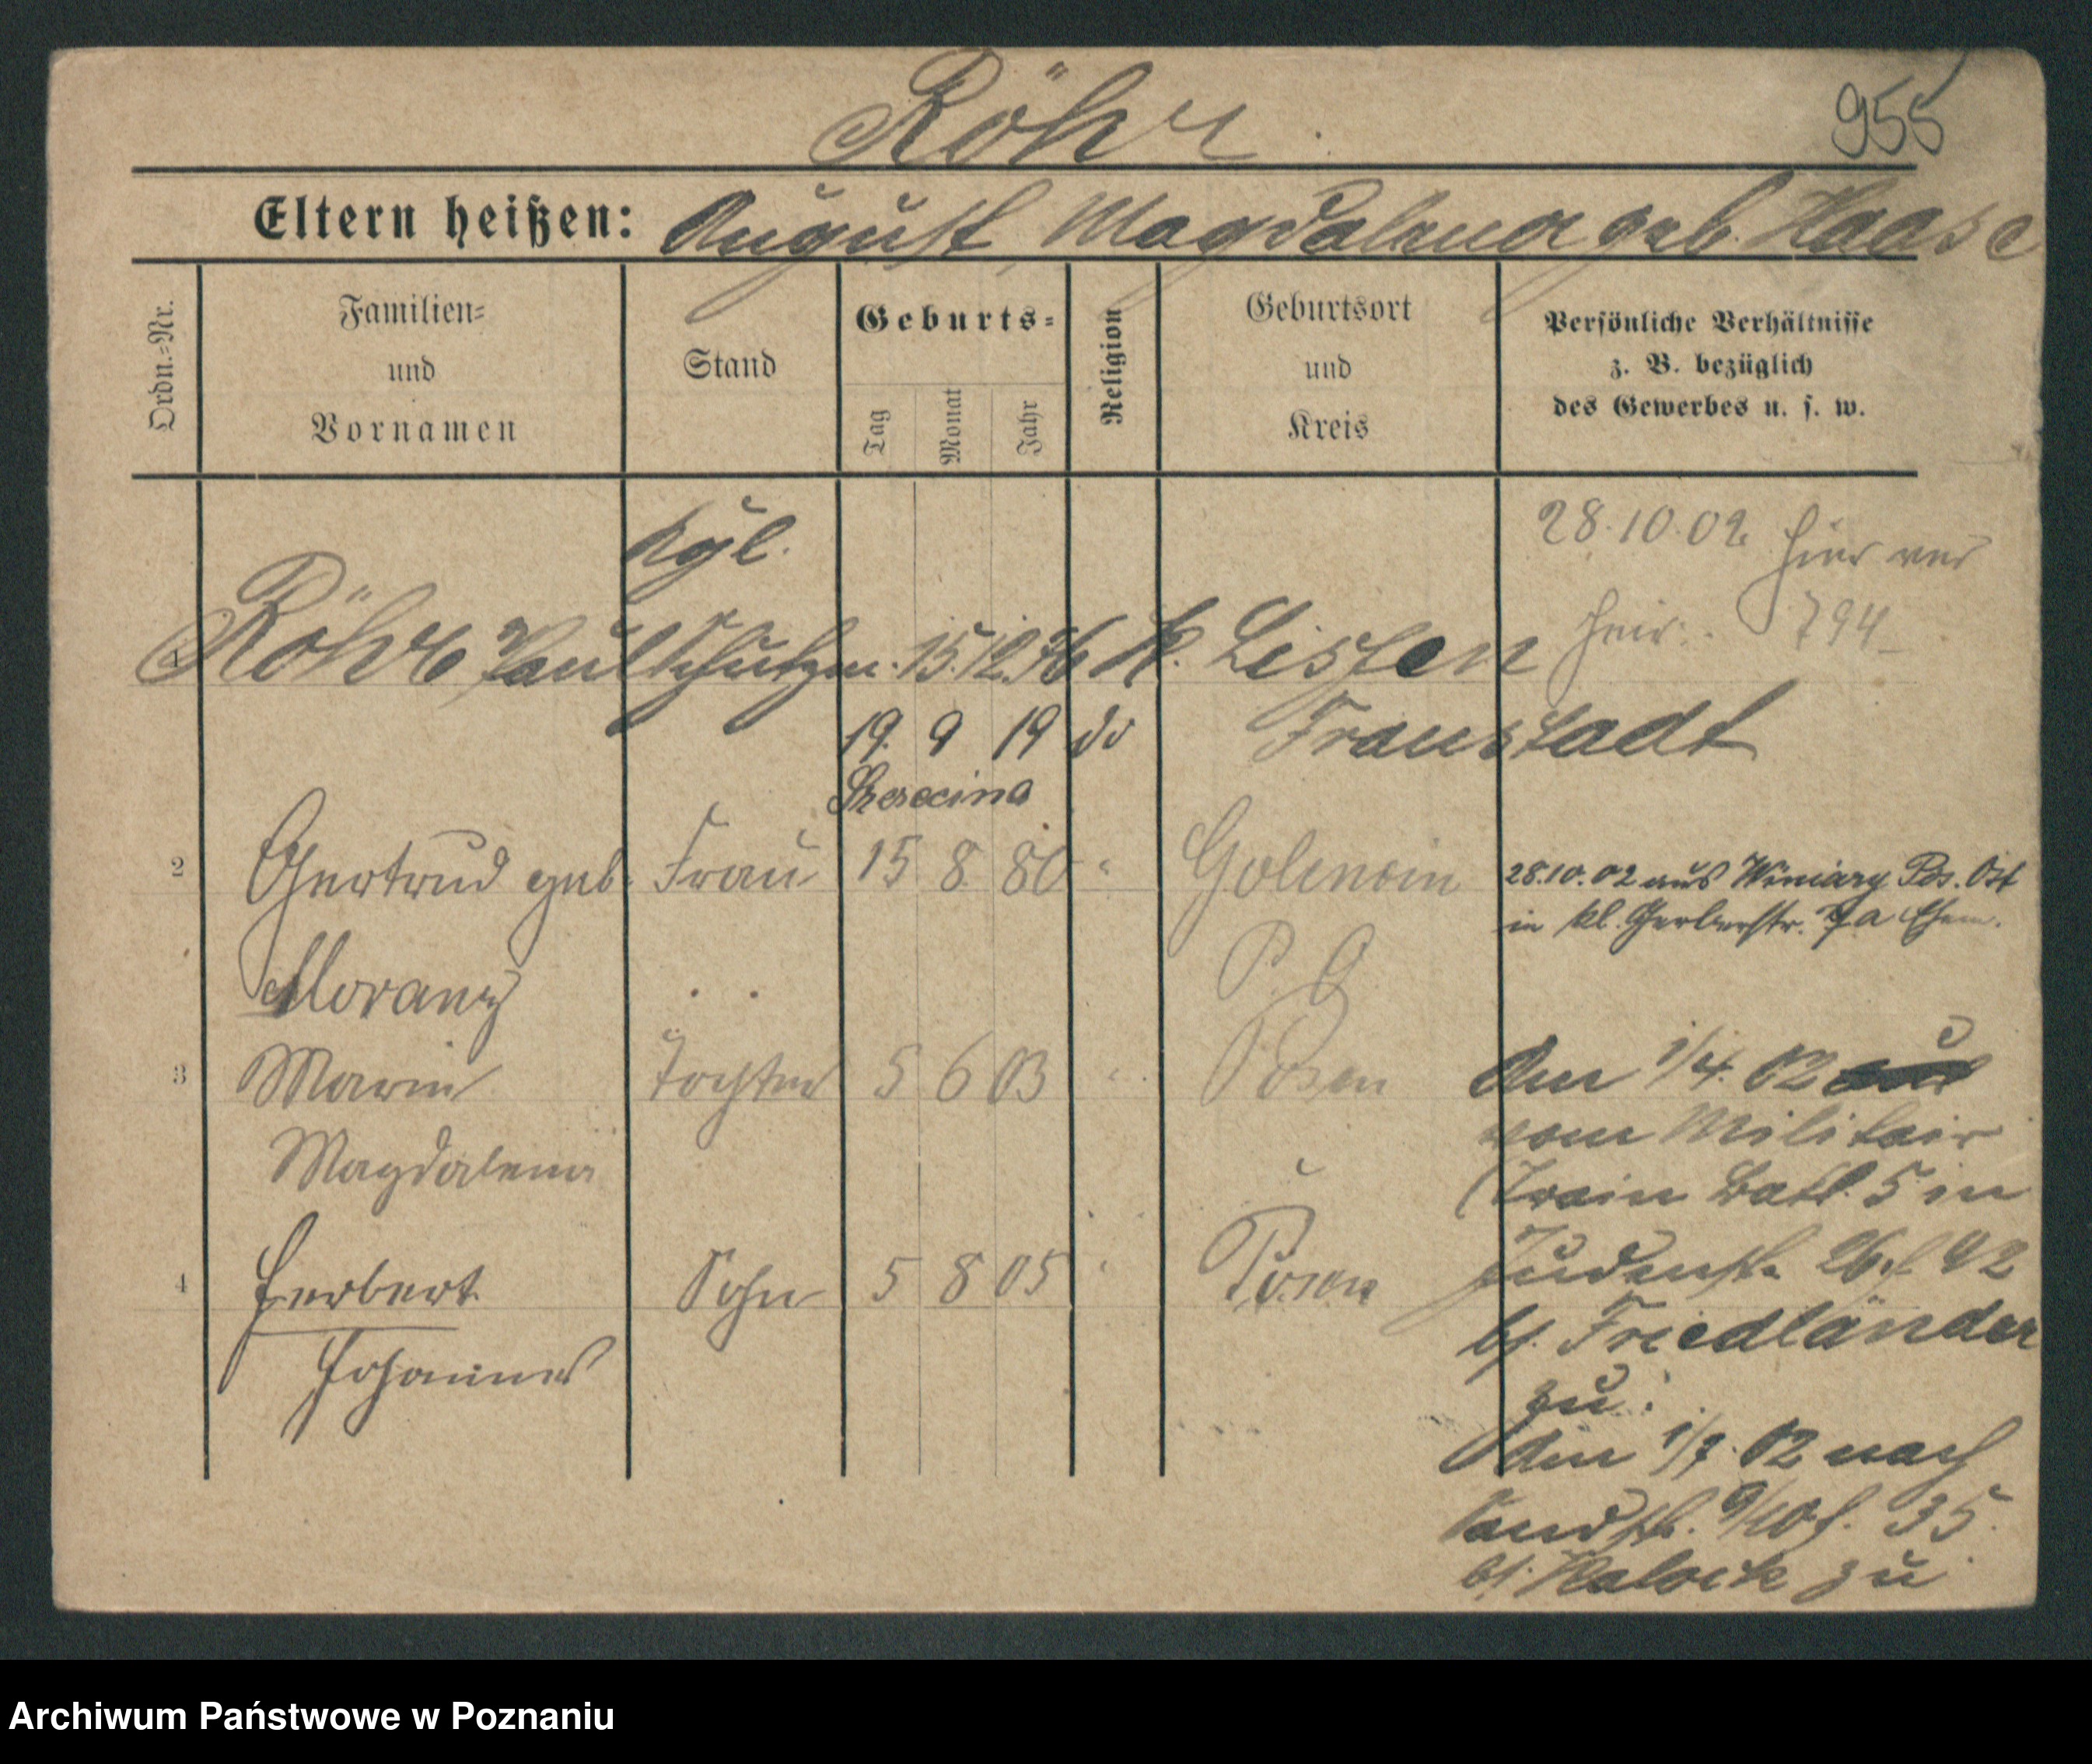 Röhr
955
Eltern heißen: August, Magdalena geb. Haase
Ordn.=Nr.
Familien=
und
Vornamen
Stand
Geburts=
Tag
Monat
Jahr
Religion
Geburtsort
und
Kreis
Persönliche Verhältnisse
z. B. bezüglich
des Gewerbes u. s. w.
28.10.02 hier ver
heir. 794
Kgl.
1 Röhr, Paul Schutzm. 15.12.76 K. Lissen
19. 9 19 do Fraustadt
2 Gertrud geb. Frau 15 8 80 " Golencin
28.10.02 aus Winiary Pos. Ost
in kl. Gerberstr. 7a
Moranz
P. O.
3 Marie Tochter 5 6 03 " Posen
Magdalena
4 Herbert Sohn 5 8 05 " Posen
Johannes
Am 1/4. 02
vom Militair
Train Batl. 5 in
Judenstr. 26
bei Friedländer
zu.
Am 1/7. 02 nach
Sandstr. 9/10 f. 35.
zu